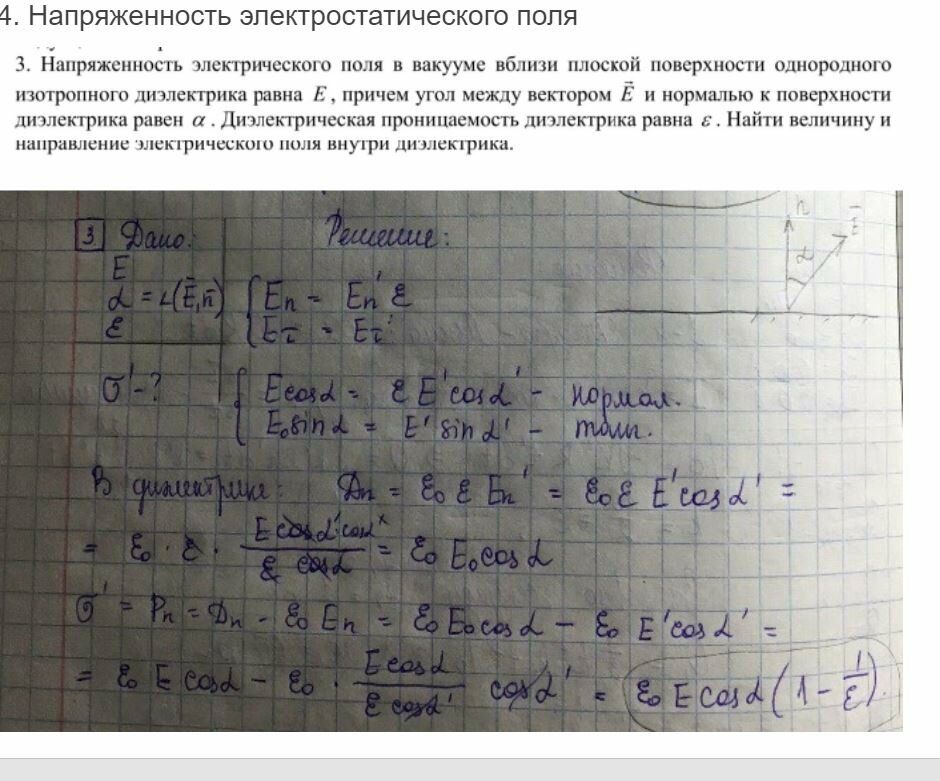 4. Напряженность электростатического поля
3. Напряженность электрического поля в вакууме вблизи плоской поверхности однородного
изотропного диэлектрика равна E, причем угол между вектором E⃗ и нормалью к поверхности
диэлектрика равен α. Диэлектрическая проницаемость диэлектрика равна ε. Найти величину и
направление электрического поля внутри диэлектрика.
3 Дано: Решение:
E
α = ∠(E⃗,n⃗)
ε
σ' - ?
n E⃗
α
{ En = En' ε
Eτ = Eτ'
{ E cosα = ε E' cosα' - нормал.
E₀ sinα = E' sinα' -
В диэлектрике: Dn = ε₀ ε En' = ε₀ ε E' cosα' =
= ε₀ · ε · E cosα' cosα / ε cosα = ε₀ E₀ cosα
σ' = Pn = Dn - ε₀ En = ε₀ E₀ cosα - ε₀ E' cosα' =
= ε₀ E cosα - ε₀ · E cosα / ε cosα' cosα' = ε₀ E cosα (1 - 1/ε).